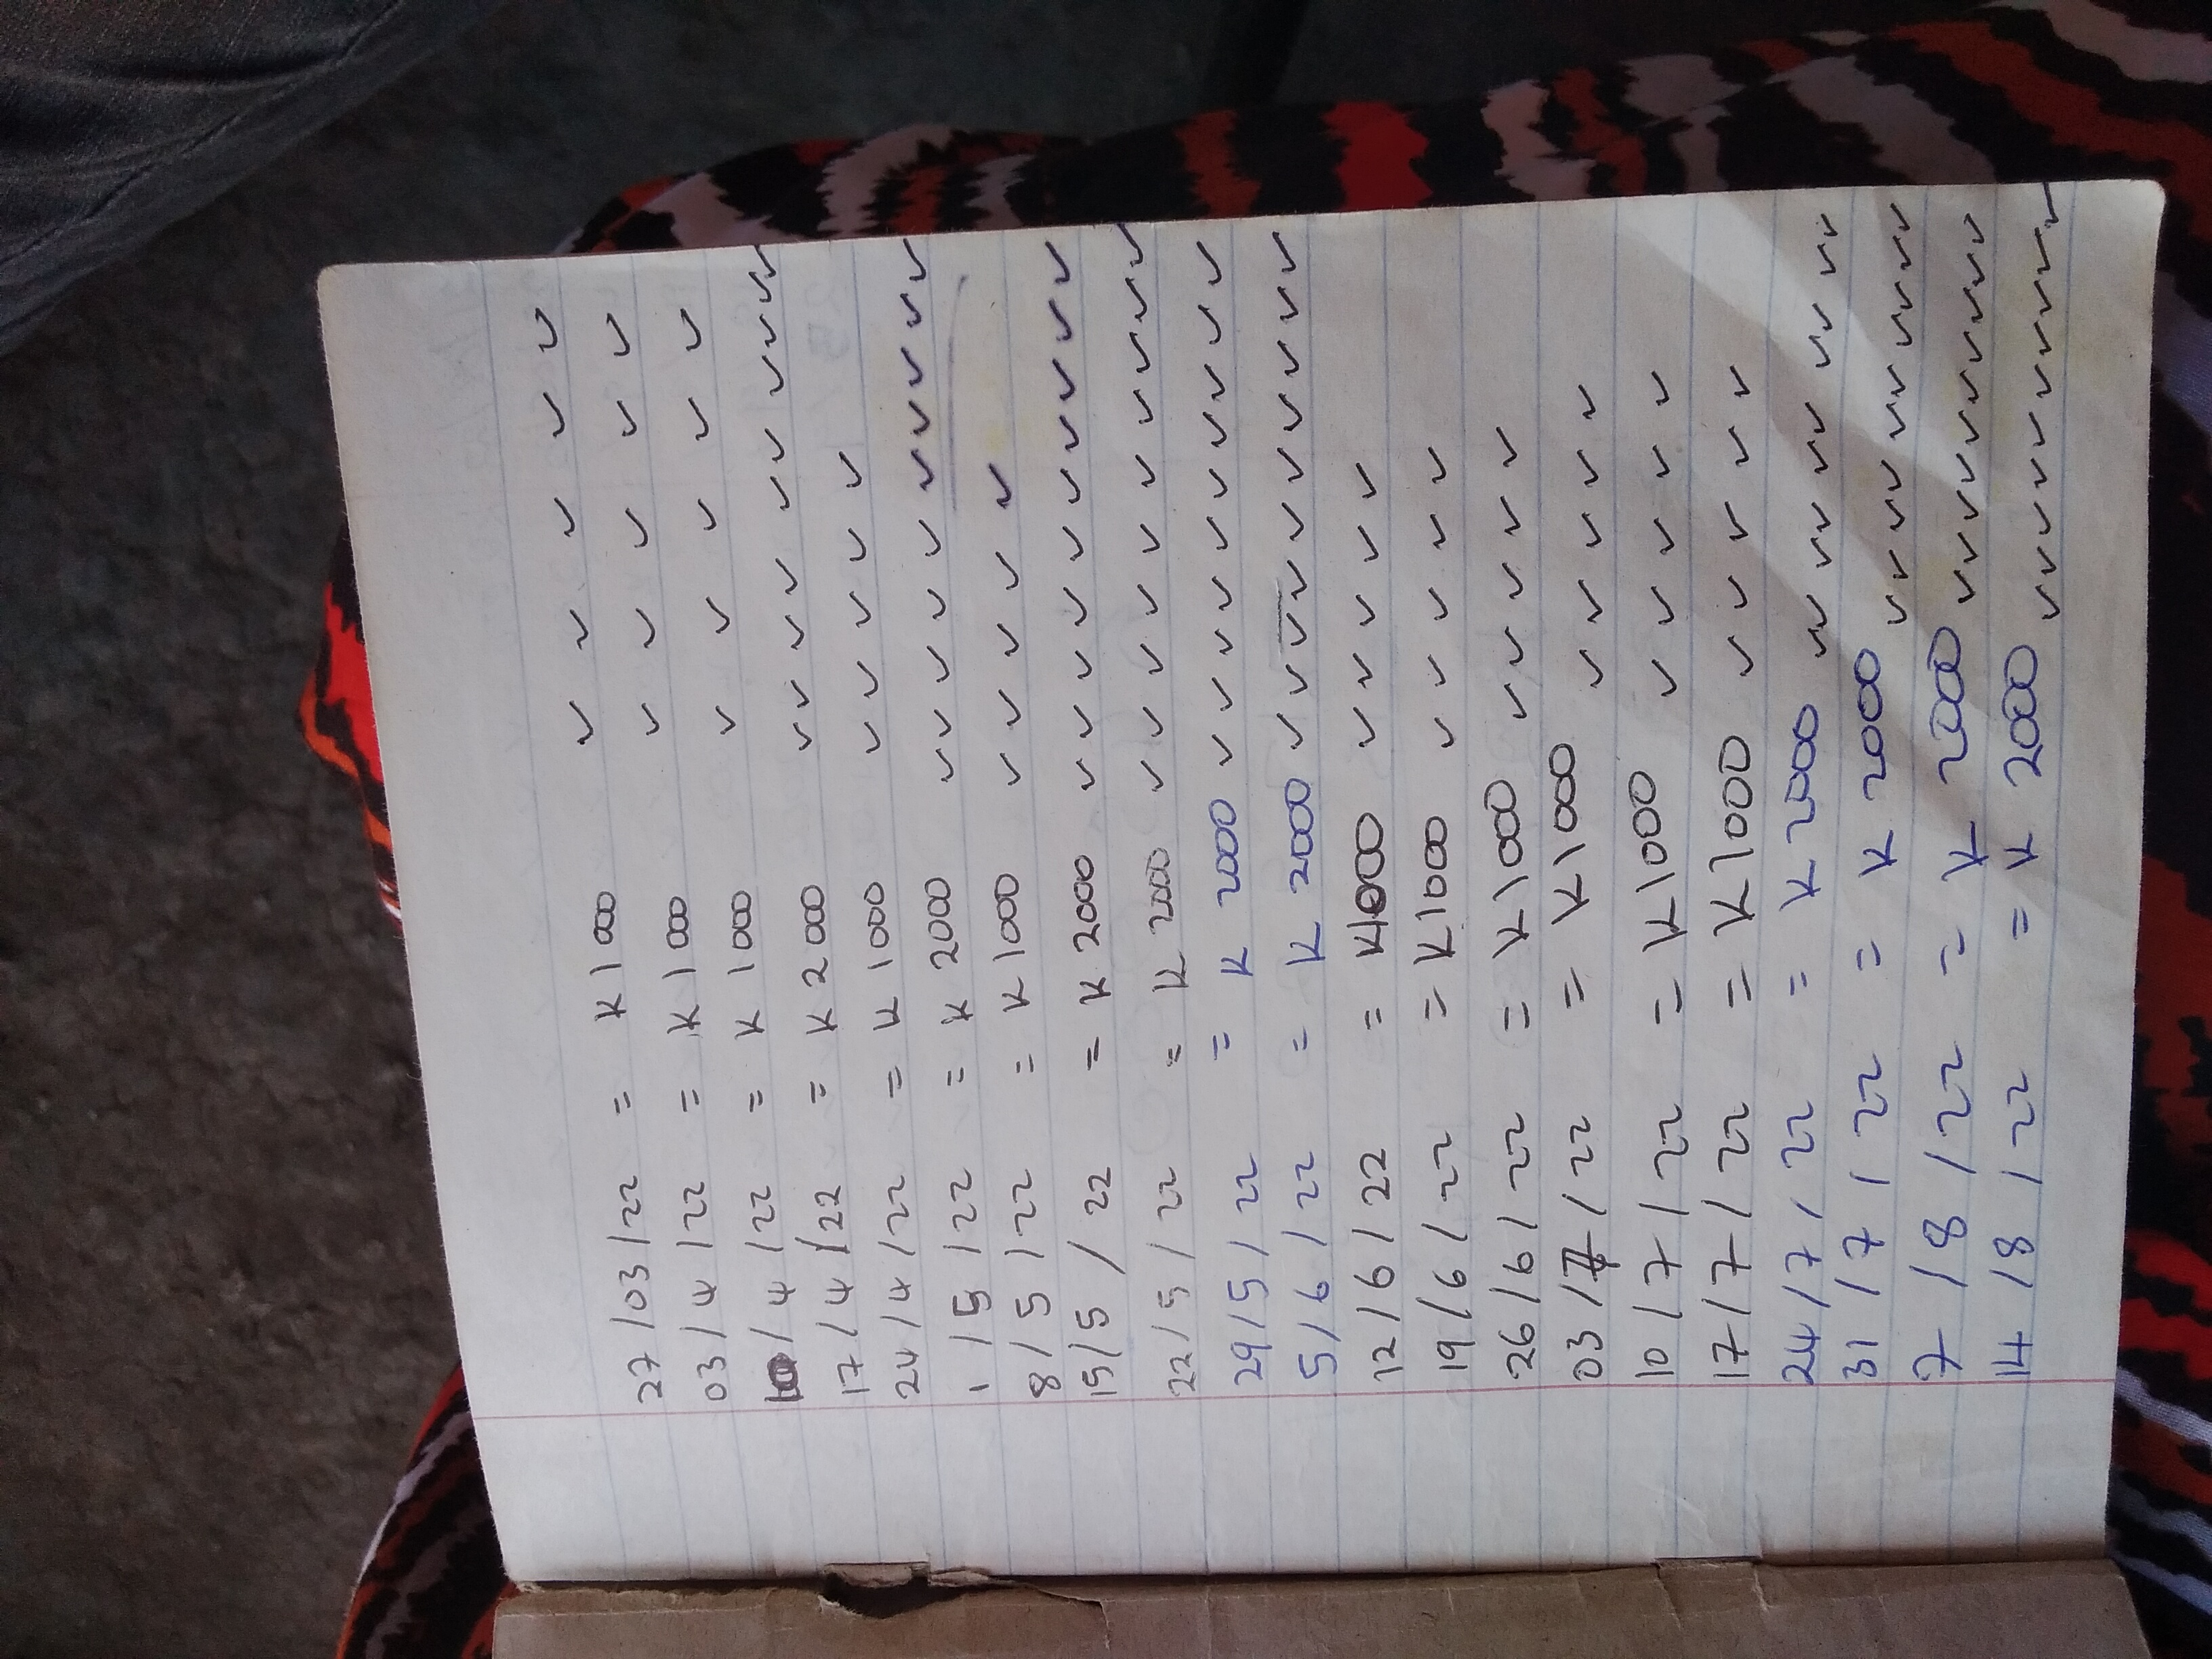 27/03/22 = K1000 ✓ ✓ ✓ ✓ ✓
03/4/22 = K1000 ✓ ✓ ✓ ✓ ✓
10/4/22 = K1000 ✓ ✓ ✓ ✓ ✓
17/4/22 = K2000 ✓ ✓ ✓ ✓ ✓ ✓ ✓ ✓ ✓ ✓
24/4/22 = K1000 ✓ ✓ ✓ ✓ ✓
1/5/22 = K2000 ✓ ✓ ✓ ✓ ✓ ✓ ✓ ✓ ✓ ✓
8/5/22 = K1000 ✓ ✓ ✓ ✓ ✓
15/5/22 = K2000 ✓ ✓ ✓ ✓ ✓ ✓ ✓ ✓ ✓ ✓
22/5/22 = K2000 ✓ ✓ ✓ ✓ ✓ ✓ ✓ ✓ ✓ ✓
29/5/22 = K2000 ✓ ✓ ✓ ✓ ✓ ✓ ✓ ✓ ✓ ✓
5/6/22 = K2000 ✓ ✓ ✓ ✓ ✓ ✓ ✓ ✓ ✓ ✓
12/6/22 = K1000 ✓ ✓ ✓ ✓ ✓
19/6/22 = K1000 ✓ ✓ ✓ ✓ ✓
26/6/22 = K1000 ✓ ✓ ✓ ✓ ✓
03/7/22 = K1000 ✓ ✓ ✓ ✓ ✓
10/7/22 = K1000 ✓ ✓ ✓ ✓ ✓
17/7/22 = K1000 ✓ ✓ ✓ ✓ ✓
24/7/22 = K2000 ✓ ✓ ✓ ✓ ✓ ✓ ✓ ✓ ✓ ✓
31/7/22 = K2000 ✓ ✓ ✓ ✓ ✓ ✓ ✓ ✓ ✓ ✓
7/8/22 = K2000 ✓ ✓ ✓ ✓ ✓ ✓ ✓ ✓ ✓ ✓
14/8/22 = K2000 ✓ ✓ ✓ ✓ ✓ ✓ ✓ ✓ ✓ ✓